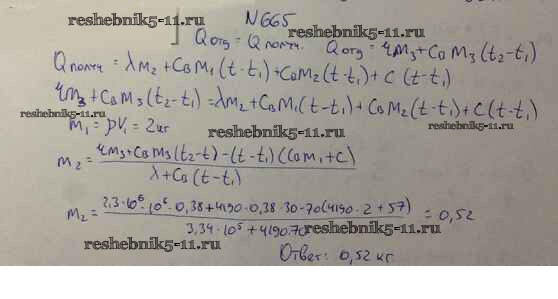 reshebnik5-11.ru
N665
reshebnik5-11.ru
Qотд = Qполуч. Qотд = rm3+CвM3(t2-t1)
Qполуч = λm2 + CвM1(t-t1)+CвM2(t-t1)+C(t-t1)
rm3+CвM3(t2-t)=λm2+CвM1(t-t1)+CвM2(t-t1)+C(t-t1)
reshebnik5-11.ru reshebnik5-11.ru
m1=ρV1=2кг
reshebnik5-11.ru
m2= rm3+CвM3(t2-t)-(t-t1)(Cвm1+C)
λ+Cв(t-t1)
m2= 2,3·10⁶·10⁶·0,38+4190·0,38·30-70(4190·2+57) = 0,52
3,34·10⁵+4190·70
reshebnik5-11.ru
reshebnik5-11.ru
Ответ: 0,52 кг.